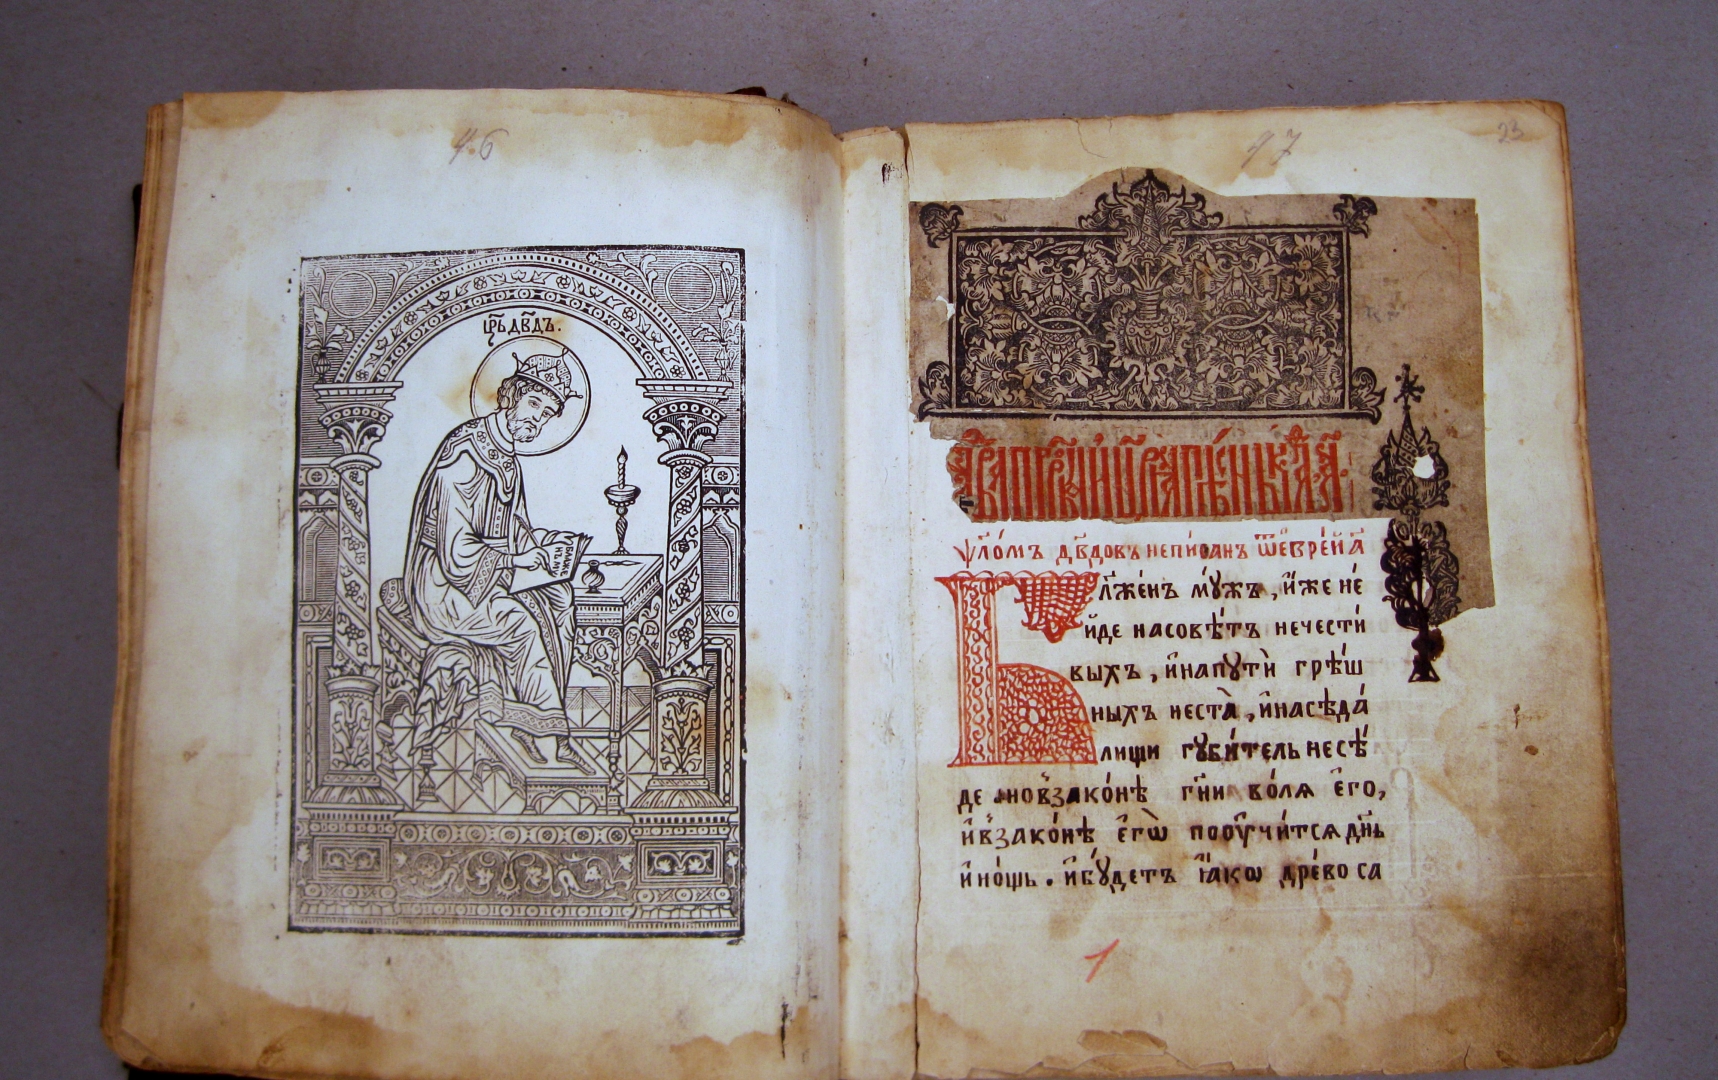 46
црь дв҃дъ.
БЛАЖЕ
НЪ МУ
47
23
ѱло́мъ дв҃довъ неписанъ ѿевре́й
л҃же́нъ мꙋ́жъ, и҆́же не́
и҆́де насовѣ́тъ нечести́
выхъ, и҆напꙋти̑ грѣ́ш
ныхъ неста̀, и҆насѣда́
лищи гꙋби́тель несѣ́
де но в̾зако́нѣ гн҃и во́лѧ є҆го̀,
и҆в̾зако́нѣ є҆гѡ̀ поꙋчи́тсѧ дн҃ь
и҆но́щь. и҆бꙋ́детъ ꙗ҆́кѡ дре́во са
1